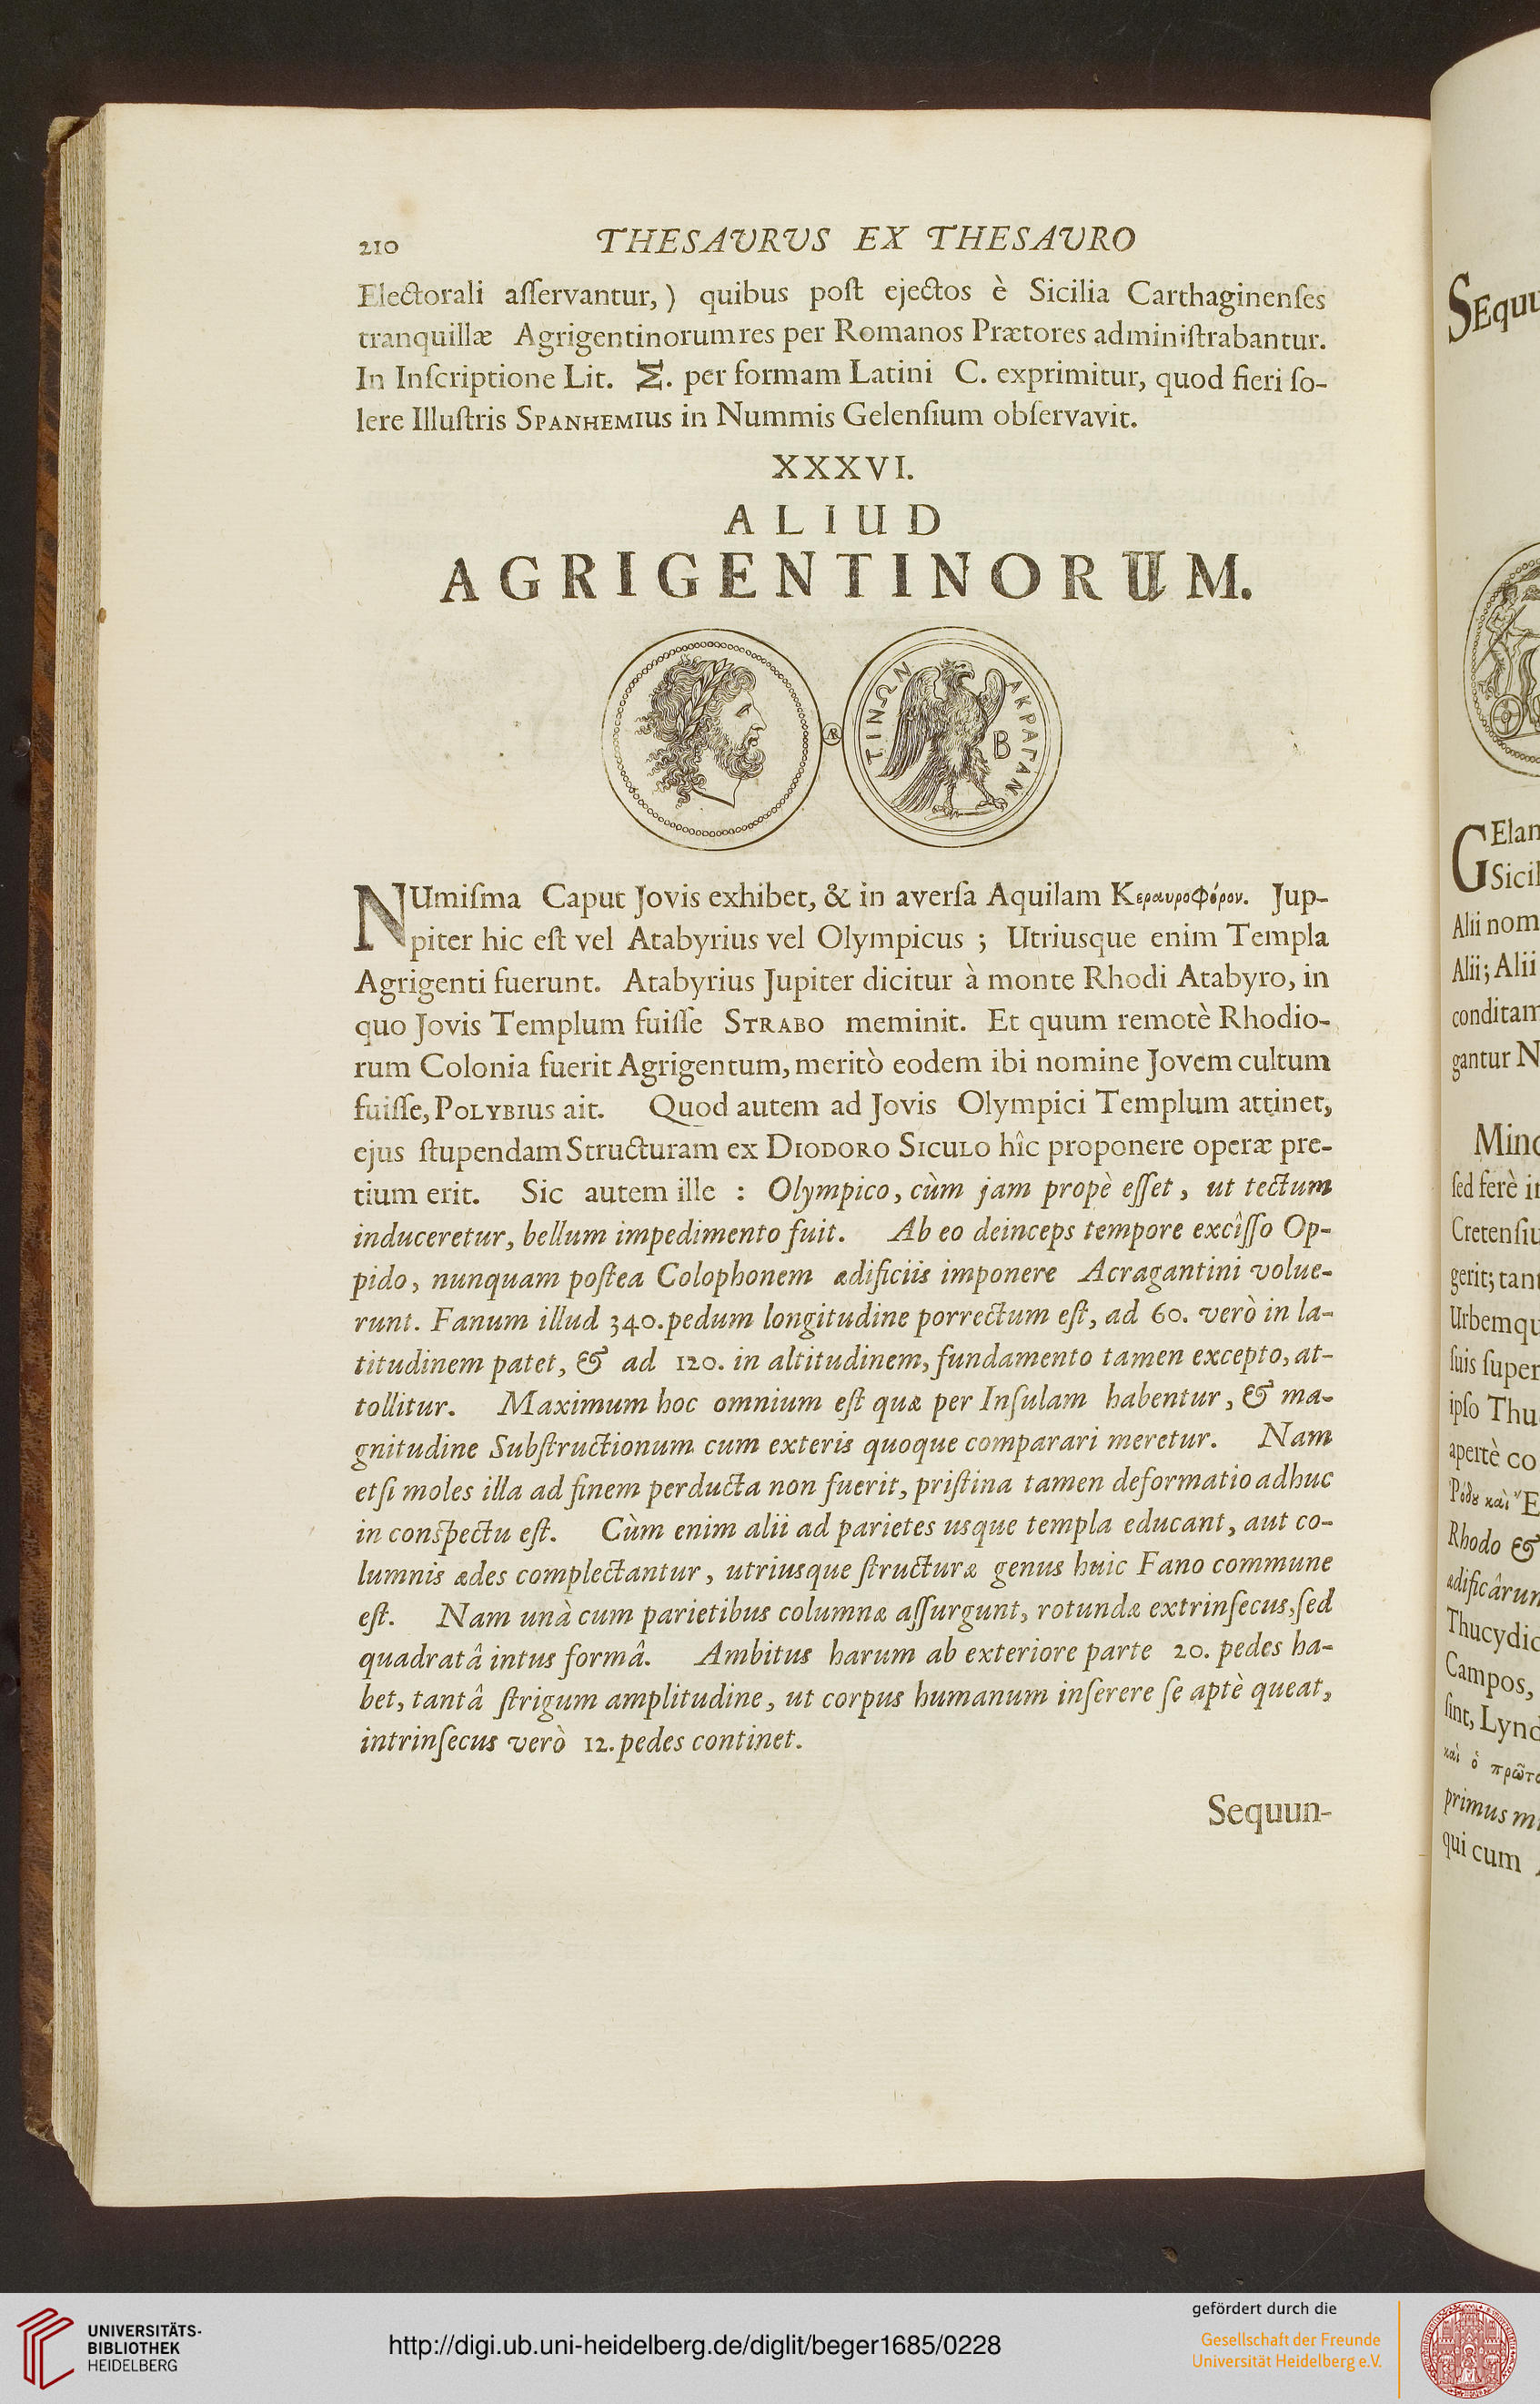 210 THESAURUS EX THESAURO
Electorali aſſervantur,) quibus poſt ejectos è Sicilia Carthaginenſes
tranquillæ Agrigentinorum res per Romanos Prætores adminiſtrabantur.
In Inſcriptione Lit. Σ. per formam Latini C. exprimitur, quod fieri ſo-
lere Illuſtris SPANHEMIUS in Nummis Gelenſium obſervavit.
XXXVI.
ALIUD
AGRIGENTINORUM.
ΑΚΡΑΓΑΝ
ΤΙΝΩΝ
B
Æ
NUmiſma Caput Jovis exhibet, & in averſa Aquilam Κεραυροφόρον. Jup-
piter hic eſt vel Atabyrius vel Olympicus ; Utriusque enim Templa
Agrigenti fuerunt. Atabyrius Jupiter dicitur à monte Rhodi Atabyro, in
quo Jovis Templum fuiſſe STRABO meminit. Et quum remotè Rhodio-
rum Colonia fuerit Agrigentum, meritò eodem ibi nomine Jovem cultum
fuiſſe, POLYBIUS ait. Quod autem ad Jovis Olympici Templum attinet,
ejus ſtupendam Structuram ex DIODORO SICULO hîc proponere operæ pre-
tium erit. Sic autem ille : Olympico, cùm jam propè eſſet, ut tectum
induceretur, bellum impedimento fuit. Ab eo deinceps tempore excîſſo Op-
pido, nunquam poſtea Colophonem ædificiis imponere Acragantini volue-
runt. Fanum illud 340. pedum longitudine porrectum eſt, ad 60. verò in la-
titudinem patet, & ad 120. in altitudinem, fundamento tamen excepto, at-
tollitur. Maximum hoc omnium eſt quæ per Inſulam habentur, & ma-
gnitudine Subſtructionum cum exteris quoque comparari meretur. Nam
etſi moles illa ad finem perducta non fuerit, priſtina tamen deformatio adhuc
in conſpectu eſt. Cùm enim alii ad parietes usque templa educant, aut co-
lumnis ædes complectantur, utriusque ſtructuræ genus huic Fano commune
eſt. Nam unà cum parietibus columnæ aſſurgunt, rotundæ extrinſecus, ſed
quadratâ intus formâ. Ambitus harum ab exteriore parte 20. pedes ha-
bet, tantâ ſtrigum amplitudine, ut corpus humanum inſerere ſe aptè queat,
intrinſecus verò 12. pedes continet.
Sequun-
Alii nom
Alii; Alii
gantur N
ſed ferè
Cretenſiu
ſuis ſuper
ipſo Thu
apertè co
Rhodo &
Campos,
primus
qui cum
UNIVERSITÄTS-
BIBLIOTHEK
HEIDELBERG
http://digi.ub.uni-heidelberg.de/diglit/beger1685/0228
gefördert durch die
Gesellschaft der Freunde
Universität Heidelberg e.V.